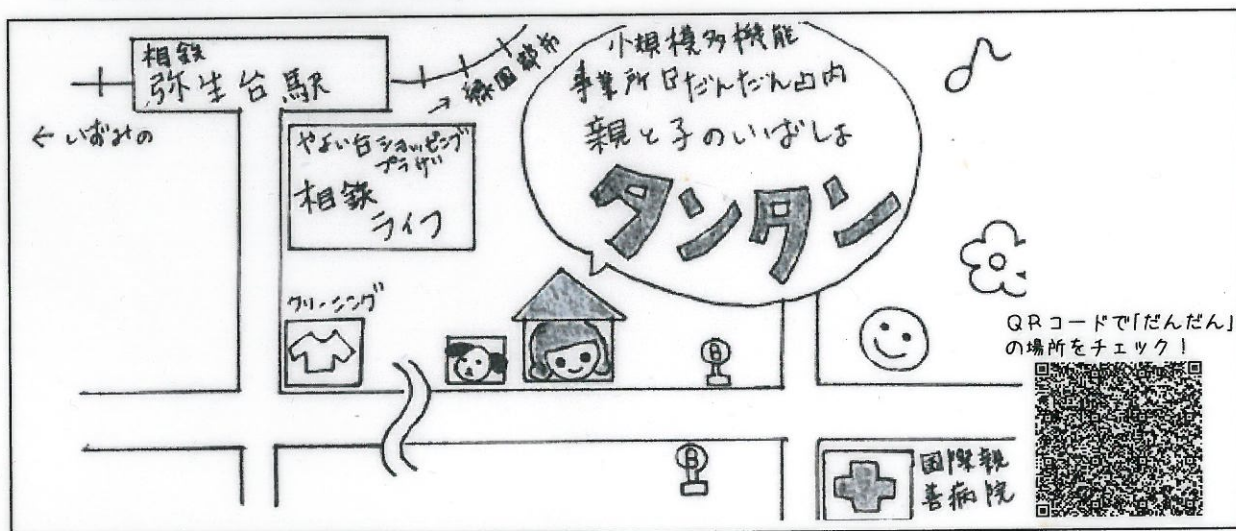 相鉄
弥生台駅
→ 緑園都市
← いずみの
やよい台ショッピング
プラザ
相鉄
ライフ
小規模多機能
事業所 だんだん 内
親と子のいばしょ
タンタン
クリーニング
B
B
国際親
善病院
QRコードで「だんだん」
の場所をチェック!